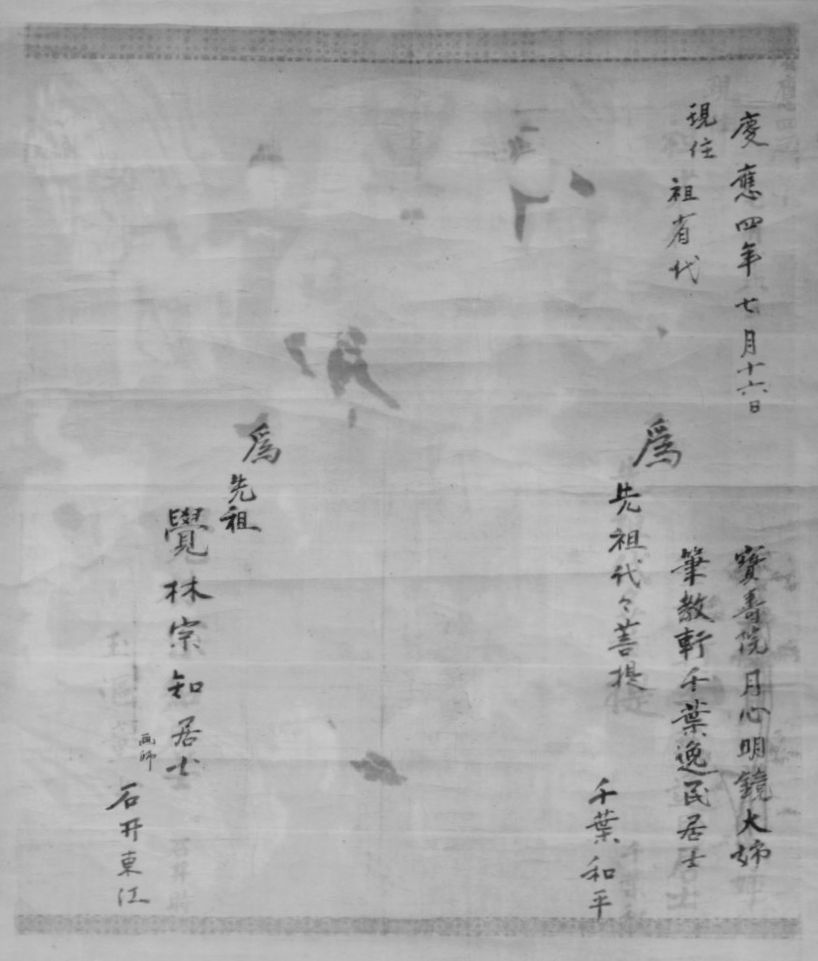 慶應四年七月十六日
現住 祖省代
寳壽院月心明鏡大姉
筆教軒千葉逸民居士
為
先祖代々菩提
千葉和平
為
先祖
覺林宗知居士
画師
石井東江